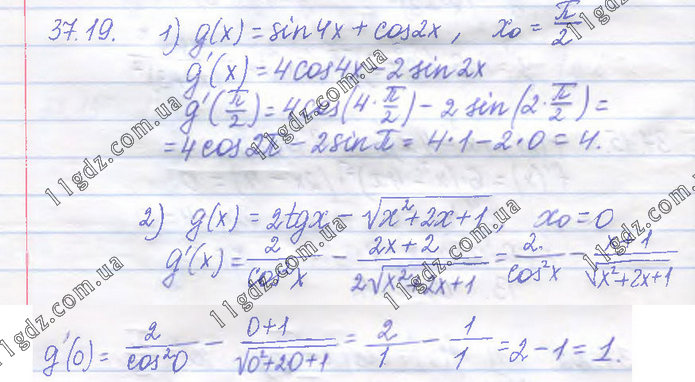 37.19. 1) g(x) = sin 4x + cos 2x, x₀ = π/2
g'(x) = 4 cos 4x − 2 sin 2x
g'(π/2) = 4 cos(4·π/2) − 2 sin(2·π/2) =
= 4 cos 2π − 2 sin π = 4·1 − 2·0 = 4.
2) g(x) = 2tgx − √(x²+2x+1), x₀ = 0
g'(x) = 2/cos²x − (2x+2)/(2√(x²+2x+1)) = 2/cos²x − (x+1)/√(x²+2x+1)
g'(0) = 2/cos²0 − (0+1)/√(0²+20+1) = 2/1 − 1/1 = 2−1 = 1.
11gdz.com.ua
11gdz.com.ua
11gdz.com.ua
11gdz.com.ua
11gdz.com.ua
11gdz.com.ua